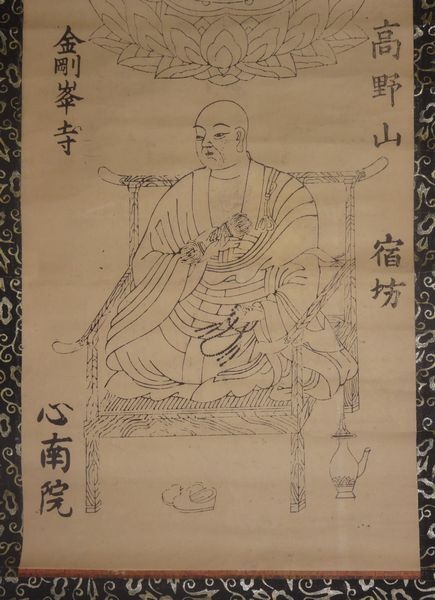 高野山
宿坊
金剛峯寺
心南院